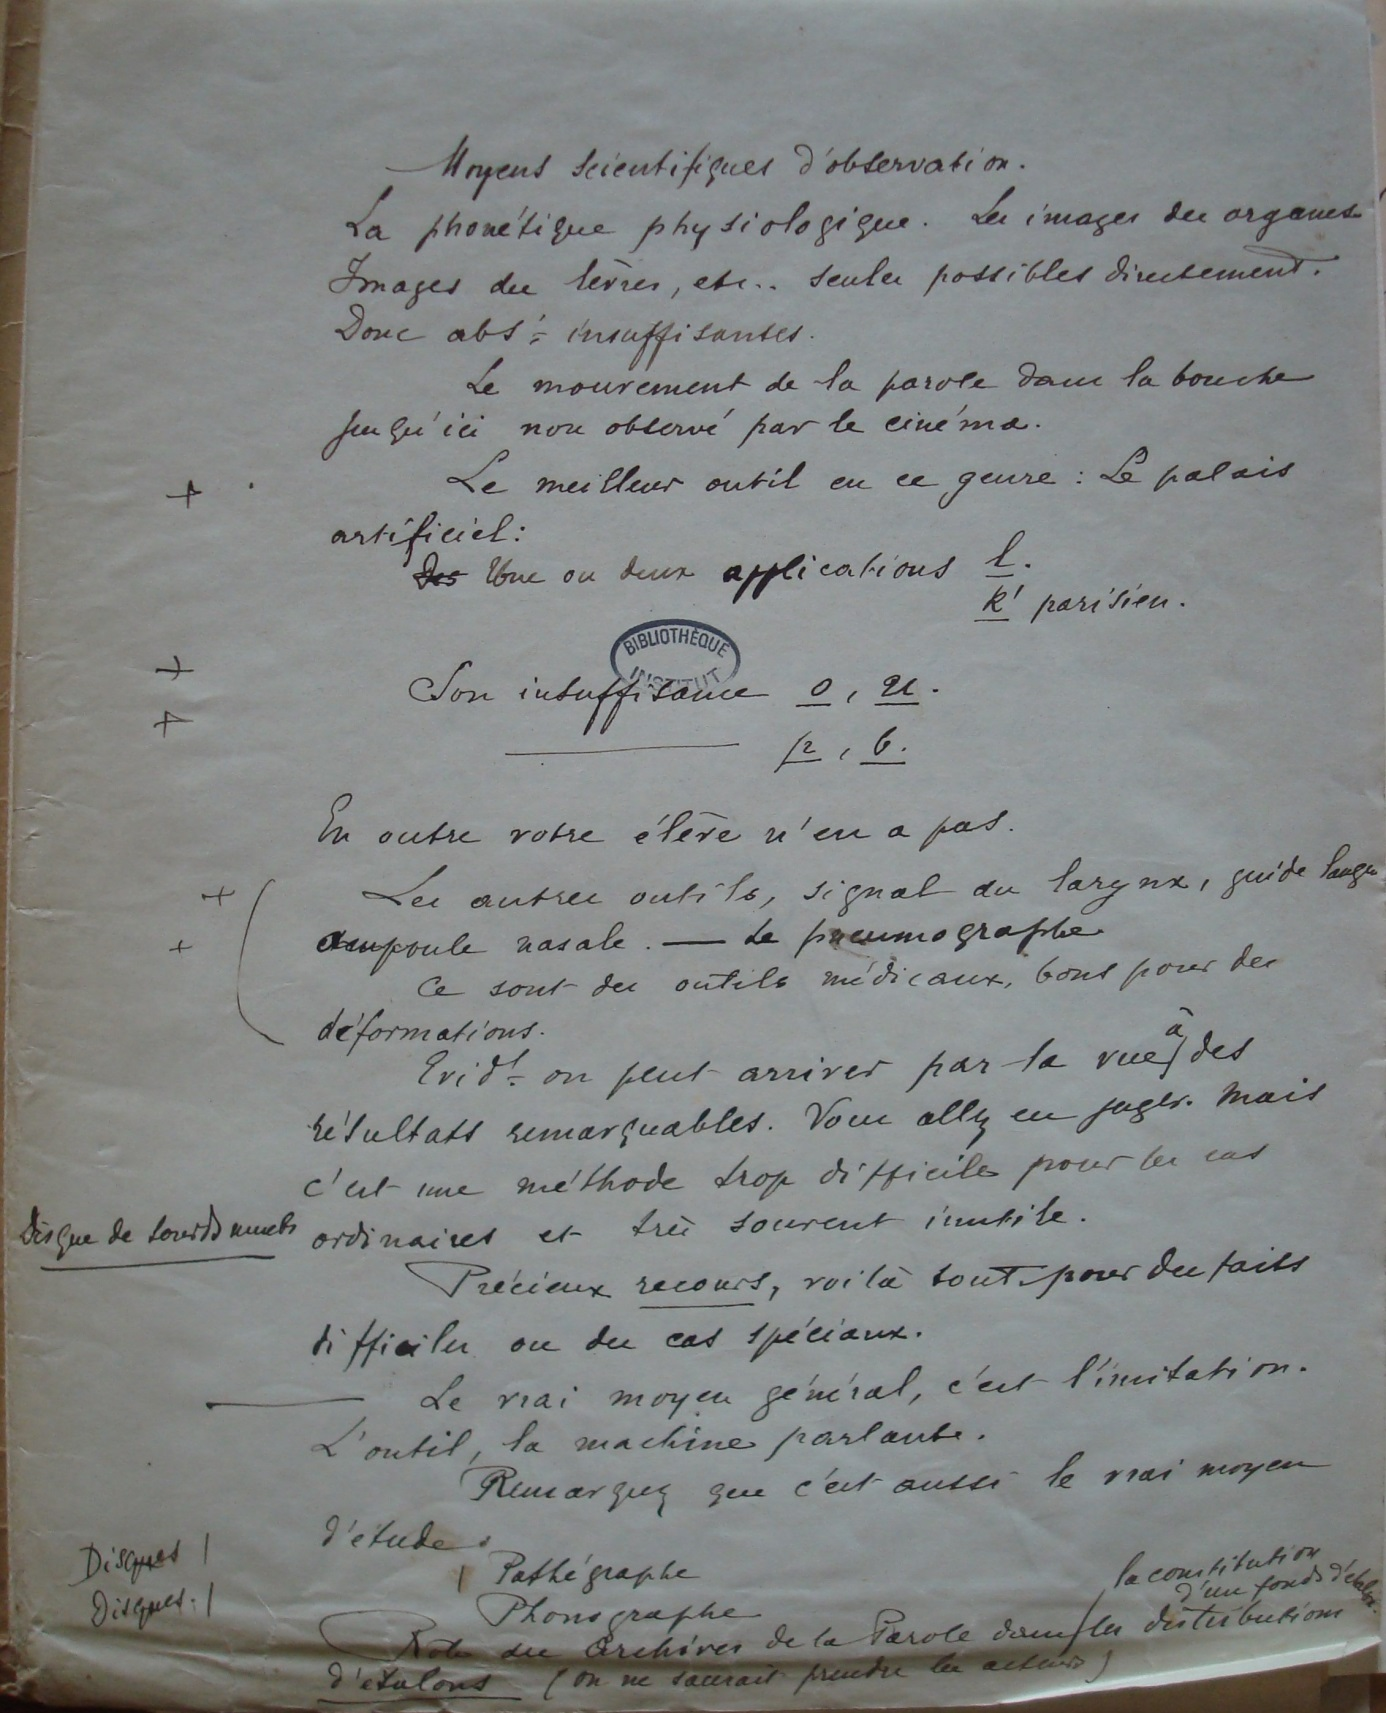 Moyens scientifiques d'observation.
La phonétique physiologique. Les images des organes
Images des lèvres, etc.. seules possibles directement.
Donc abst insuffisantes.
Le mouvement de la parole dans la bouche
jusqu'ici non observé par le cinéma.
+ Le meilleur outil en ce genre : Le palais
artificiel :
Des Une ou deux applications l.
k' parisien.
BIBLIOTHÈQUE
INSTITUT
+ Son insuffisance o, u.
+ p, b.
En outre votre élève n'en a pas.
+ Les autres outils, signal du larynx, guide langue
+ ampoule nasale. — Le pneumographe
Ce sont des outils médicaux, bons pour des
déformations.
Evidt on peut arriver par la vue à des
résultats remarquables. Vous allez en juger. Mais
c'est une méthode trop difficile pour les cas
Disque de sourds muets
ordinaires et très souvent inutile.
Précieux recours, voilà tout, pour des faits
difficiles ou des cas spéciaux.
— Le vrai moyen général, c'est l'imitation.
L'outil, la machine parlante.
Remarquez que c'est aussi le vrai moyen
d'étude :
Disques | Pathégraphe
Disques. | Phonographe
la constitution
d'un fonds d'étalons.
Rôle des Archives de la Parole dans les distributions
d'étalons (on ne saurait prendre les acteurs)